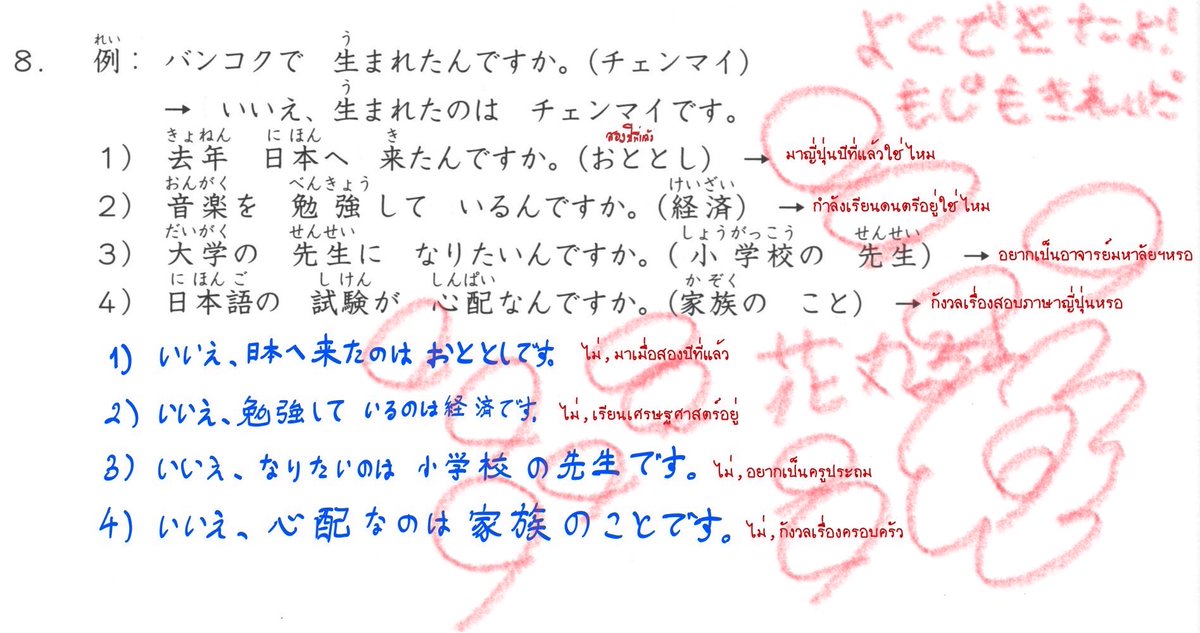 よくできたよ!
もじもきれいだ
8. 例: バンコクで 生まれたんですか。(チェンマイ)
→ いいえ、生まれたのは チェンマイです。
1) 去年 日本へ 来たんですか。(おととし) → มาญี่ปุ่นปีที่แล้วใช่ไหม
2) 音楽を 勉強して いるんですか。(経済) → กำลังเรียนดนตรีอยู่ใช่ไหม
3) 大学の 先生に なりたいんですか。(小学校の 先生) → อยากเป็นอาจารย์มหาลัยฯหรอ
4) 日本語の 試験が 心配なんですか。(家族の こと) → กังวลเรื่องสอบภาษาญี่ปุ่นหรอ
1) いいえ、日本へ来たのは おととしです。 ไม่, มาเมื่อสองปีที่แล้ว
2) いいえ、勉強して いるのは経済です。 ไม่, เรียนเศรษฐศาสตร์อยู่
3) いいえ、なりたいのは 小学校の先生です。 ไม่, อยากเป็นครูประถม
4) いいえ、心配なのは家族のことです。 ไม่, กังวลเรื่องครอบครัว
花丸